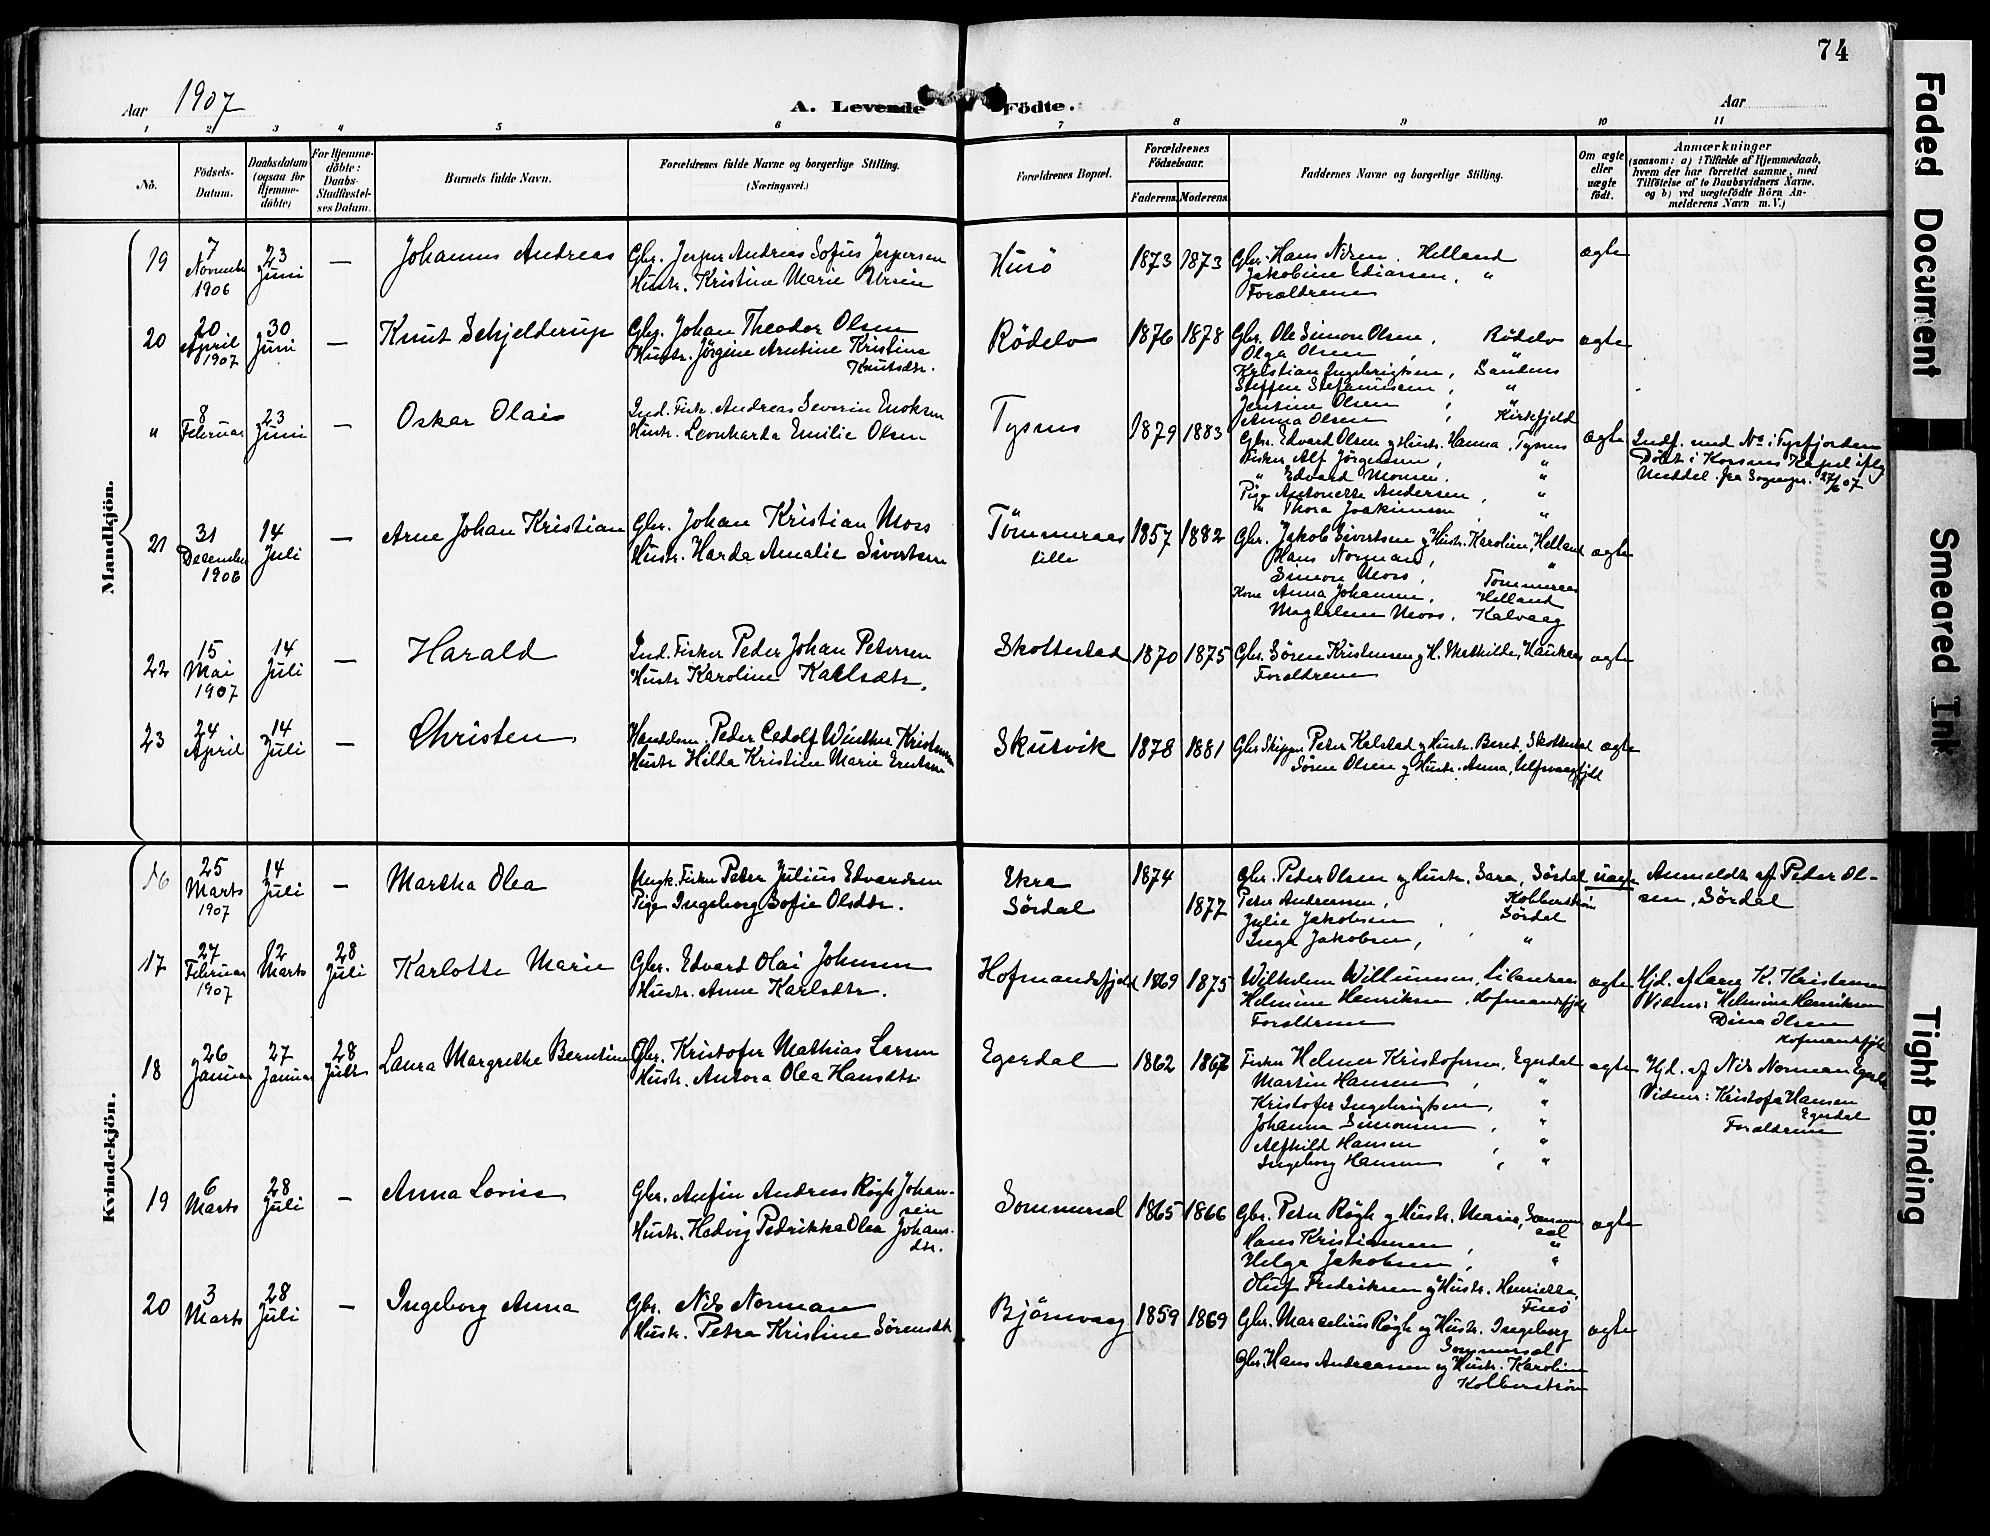 74
Aar 1907
A. Levende Födte.
Aar
1 2 3 4 5 6 7 8 9 10 11
No.
Födsels-Datum.
Daabsdatum (ogsaa for Hjemme-döbte)
For Hjemme-döbte: Daabs-Stadfæstel-ses Datum.
Barnets fulde Navn.
Forældrenes fulde Navne og borgerlige Stilling.
(Næringsvei.)
Forældrenes Bopæl.
Forældrenes Födselsaar.
Faderens Moderens
Faddernes Navne og borgerlige Stilling.
Om ægte eller uægte født.
Anmærkninger
(saasom: a) i Tilfælde af Hjemmedaab,
hvem der har forrettet samme, med
Tilföielse af to Daabsvidners Navne,
og b) ved uægtefödte Börn An-
melderens Navn m. V.)
Mandkjön.
19 7 November 1906 23 Juni — Johannes Andreas
Gbr. Jesper Andreas Sofus Jespersen
Hustr. Kristine Marie
Husö 1873 1873
Gbr. Hans Nilsen, Helland
Jakobine Ediassen, "
Forældrene
ægte
20 20 April 1907 30 Juni — Knut Schjelderup
Gbr. Johan Theodor Olsen
Hustr. Jörgine Arntine Kristine
Knutsdtr.
Rödelv 1876 1878
Gbr. Ole Simon Olsen, Rödelv
Olga Olsen, "
Kristian Ingebrigtsen,
Steffen Stefanussen, "
Jentine Olsen, "
Anna Olsen, Kirkfjeld
ægte
" 8 Februar 23 Juni — Oskar Olai
Ind. Fisk. Andreas Severin Enoksen
Hustr. Leonharda Emilie Olsen
Tysnes 1879 1883
Gbr. Edvard Olsen og Hustr. Hanna, Tysnes
Fisker Alf Jörgensen, "
" Edvard Monsen, "
Pige Antonette Andersen, "
" Thora Joakimsen "
ægte
Indf. med No i Tysfjorden
Döbt i Korsnes Kapel iflg
Meddel. fra Sognepr. 27/6 07
21 31 December 1906 14 Juli — Arne Johan Kristian
Gbr. Johan Kristian Moss
Hustr. Harda Amalie Sivertsen
Tömmeraas lille 1857 1882
Gbr. Jakob Sivertsen og Hustr. Karoline, Helland
Hans Norman, "
Simon Moss, Tömmeraas
Kone Anna Johansen, Helland
Magdalena Moss, Kalvaag
ægte
22 15 Mai 1907 14 Juli — Harald
Ind. Fisker Peder Johan Petersen
Hustr Karoline Karlsdtr.
Skottestad 1870 1875
Gbr. Sören Kristensen og H. Mathilde,
Forældrene
ægte
23 24 April 14 Juli — Christen
Handelsm. Peder Cedolf Winther Kristensen
Hustr Hilda Kristine Marie
Skutvik 1878 1881
Gbr Skipper Peter Kalstad og Hustr. Beret, Skottestad
Sören Olsen og Hustr. Anna, Ulfsvaagfjeld
ægte
Kvindekjön.
16 25 Marts 1907 14 Juli — Martha Olea
Ungk. Fisker Peter Julius Edvardsen
Pige Ingeborg Sofie Olsdtr.
Ekra
Sördal
1874
1877
Gbr. Peder Olsen og Hustr. Sara, Sördal
Peter Andreassen, Kobberström
Julie Jakobsen, Sördal
Inga Jakobsen, "
uægte
Anmeldt af Peder Ol-
sen, Sördal
17 27 Februar 1907 12 Marts 28 Juli Karlotte Marie
Gbr. Edvard Olai Johnsen
Hustr. Anne Karlsdtr.
Hofmandsfjeld 1869 1875
Wilhelm Willumsen,
Helmine Henriksen, Hofmandsfjeld
Forældrene
ægte
Hjd. af Lærer K. Kristensen
Vidner: Helmine Henriksen
Dina Olsen
Hofmandsfjeld
18 26 Januar 27 Januar 28 Juli Laura Margrethe Berntine
Gbr. Kristofer Mathias Larsen
Hustr. Antora Olea Hansdtr.
Egerdal 1862 1867
Fisker Helmer Kristofersen, Egerdal
Martin Hansen, "
Kristofer Ingebrigtsen, "
Johanna Simonsen, "
Alfhild Hansen, "
Ingeborg Hansen, "
ægte
Hjd. af Nils Norman Egerdal
Vidner: Kristofer Hansen
Egerdal
Forældrene
19 6 Marts 28 Juli — Anna Lovise
Gbr. Anfin Andreas Røgh Johan-
sen
Hustr. Hedvig Pedrikke Olea Johans-
dtr.
Sommersel 1865 1866
Gbr. Peter Røgh og Hustr. Marie, Sommer
sel
Hans Kristiansen, "
Helga Jakobsen, "
Oluf Fredriksen og Hustr. Henriette,
Finö
ægte
20 3 Marts 28 Juli — Ingeborg Anna
Gbr. Nils Norman
Hustr. Petra Kristine Sörensdtr
Björnvaag 1859 1869
Gbr. Marselius Røgh og Hustr. Ingeborg
Sommersel
Gbr. Hans Andreassen og Hustr. Karoline
Kobberström
ægte
Faded Document
Smeared Ink
Tight Binding